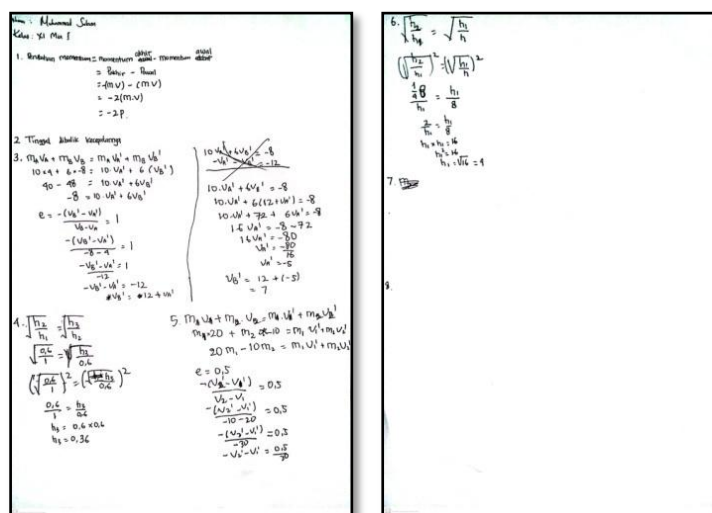 Nama : Muhammad
Kelas : XI Mia 1
1. Perubahan momentum = momentum akhir - momentum awal
= Pakhir - Pawal
= -(m v) - (m v)
= -2(m.v)
= -2p.
2 Tinggal dibalik kecepatannya
3. mA VA + mB VB = mA VA' + mB VB'
10 × 4 + 6 × -8 = 10 . VA' + 6 (VB')
40 - 48 = 10 . VA' + 6VB'
-8 = 10 . VA' + 6VB'
e = -(VB' - VA') / VB - VA = 1
-(VB' - VA') / -8 - 4 = 1
-VB' - VA' / -12 = 1
-VB' - VA' = -12
VB' = 12 + VA'
10 VA' + 6VB' = -8
-VA' - VB' = -12
10 . VA' + 6VB' = -8
10 . VA' + 6(12 + VA') = -8
10 . VA' + 72 + 6VA' = -8
16 VA' = -8 - 72
16 VA' = -80
VA' = -80 / 16
VA' = -5
VB' = 12 + (-5)
= 7
4. √h2/h1 = √h3/h2
√0,6/1 = √h3/0,6
(√0,6/1)² = (√h3/0,6)²
0,6/1 = h3/0,6
h3 = 0,6 × 0,6
h3 = 0,36
5. m1 V1 + m2 . V2 = m1 . V1' + m2 V2'
m1 . 20 + m2 . -10 = m1 V1' + m2 V2'
20 m1 - 10 m2 = m1 V1' + m2 V2'
e = 0,5
-(V2' - V1') / V2 - V1 = 0,5
-(V2' - V1') / -10 - 20 = 0,5
-(V2' - V1') / -30 = 0,5
-V2' - V1' = 0,5 / 30
6. √h2/h1 = √h1/h
(√h2/h1)² = (√h1/h)²
1/4 8 / h1 = h1/8
2/h1 = h1/8
h1 × h1 = 16
h1² = 16
h1 = √16 = 4
7.
8.